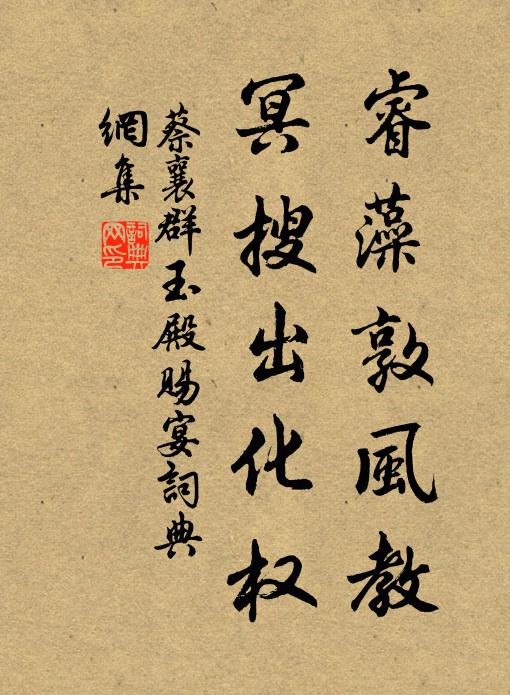 睿藻敦風教
冥搜出化权
蔡襄群玉殿賜宴詞典
網集
詞典
网印